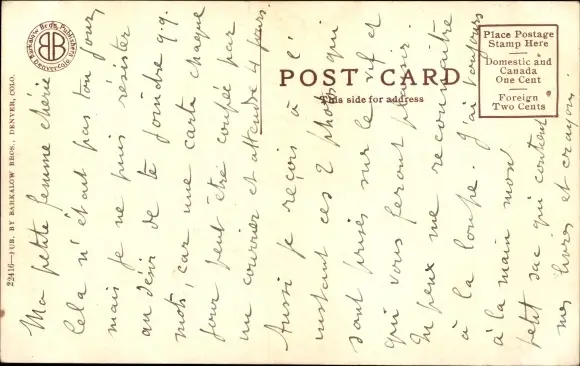 BARKALOW BROS. Publishers
BB
Denver, Colo.
22416—PUB. BY BARKALOW BROS., DENVER, COLO.
POST CARD
This side for address
Place Postage
Stamp Here
Domestic and
Canada
One Cent
Foreign
Two Cents
Ma petite femme chérie
Cela n'était pas ton jour,
mais je ne puis résister
au désir de te joindre q.q.
mots, car une carte chaque
jour peut être coupée par
un courrier et attendre 4 jours.
Aussi je reçois à l'
instant ces 2 photos qui
sont prises sur le vif et
qui vous feront plaisir.
Tu peux me reconnaitre
à la loupe. J'ai toujours
à la main mon
petit sac qui contient
mes livres et crayon.